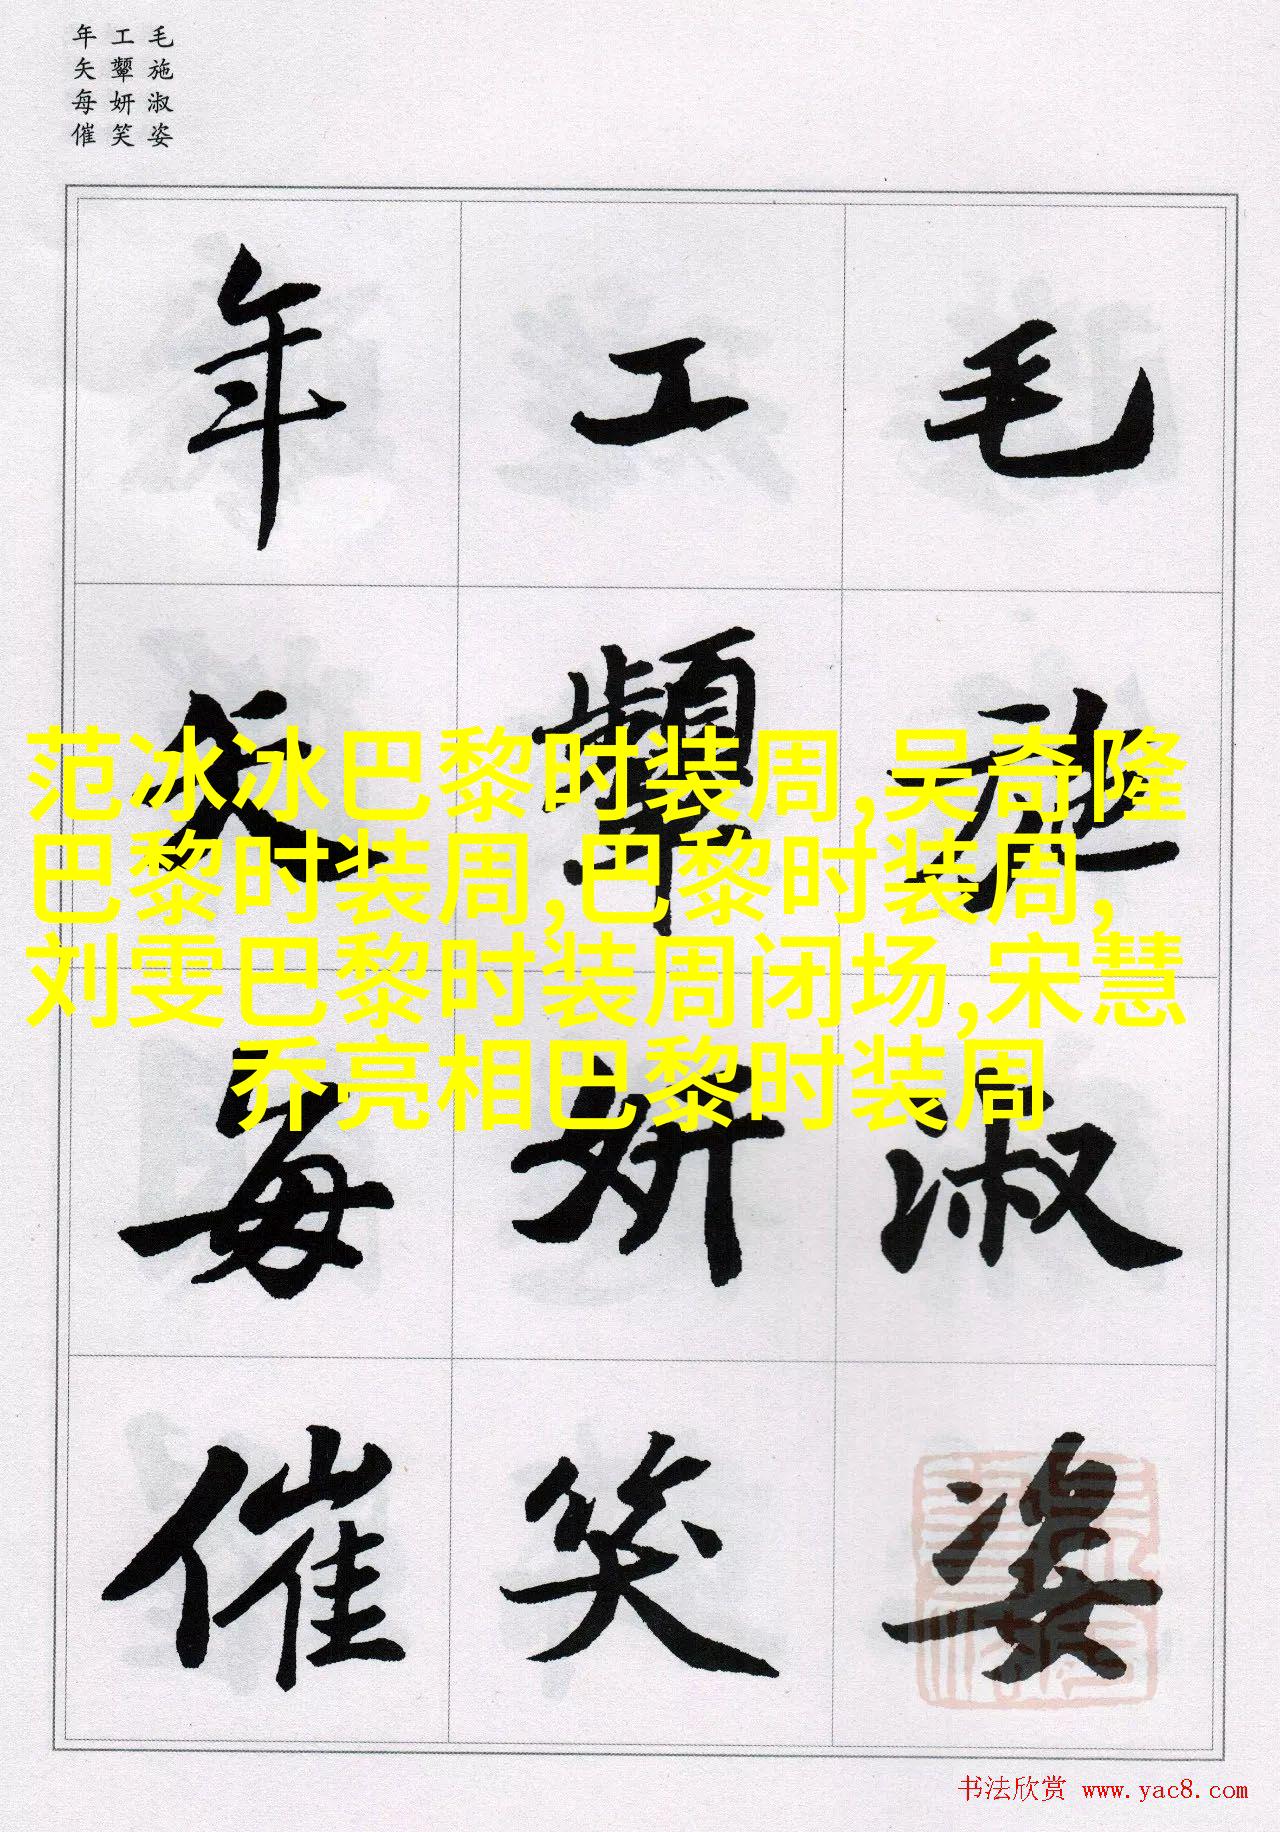 毛施淑姿
工顰妍笑
年矢每催
毛施淑姿
工顰妍笑
年矢每催
范冰冰巴黎时装周,吴奇隆
巴黎时装周,巴黎时装周,
刘雯巴黎时装周闭场,宋慧
乔亮相巴黎时装周
书法欣赏 www.yac8.com